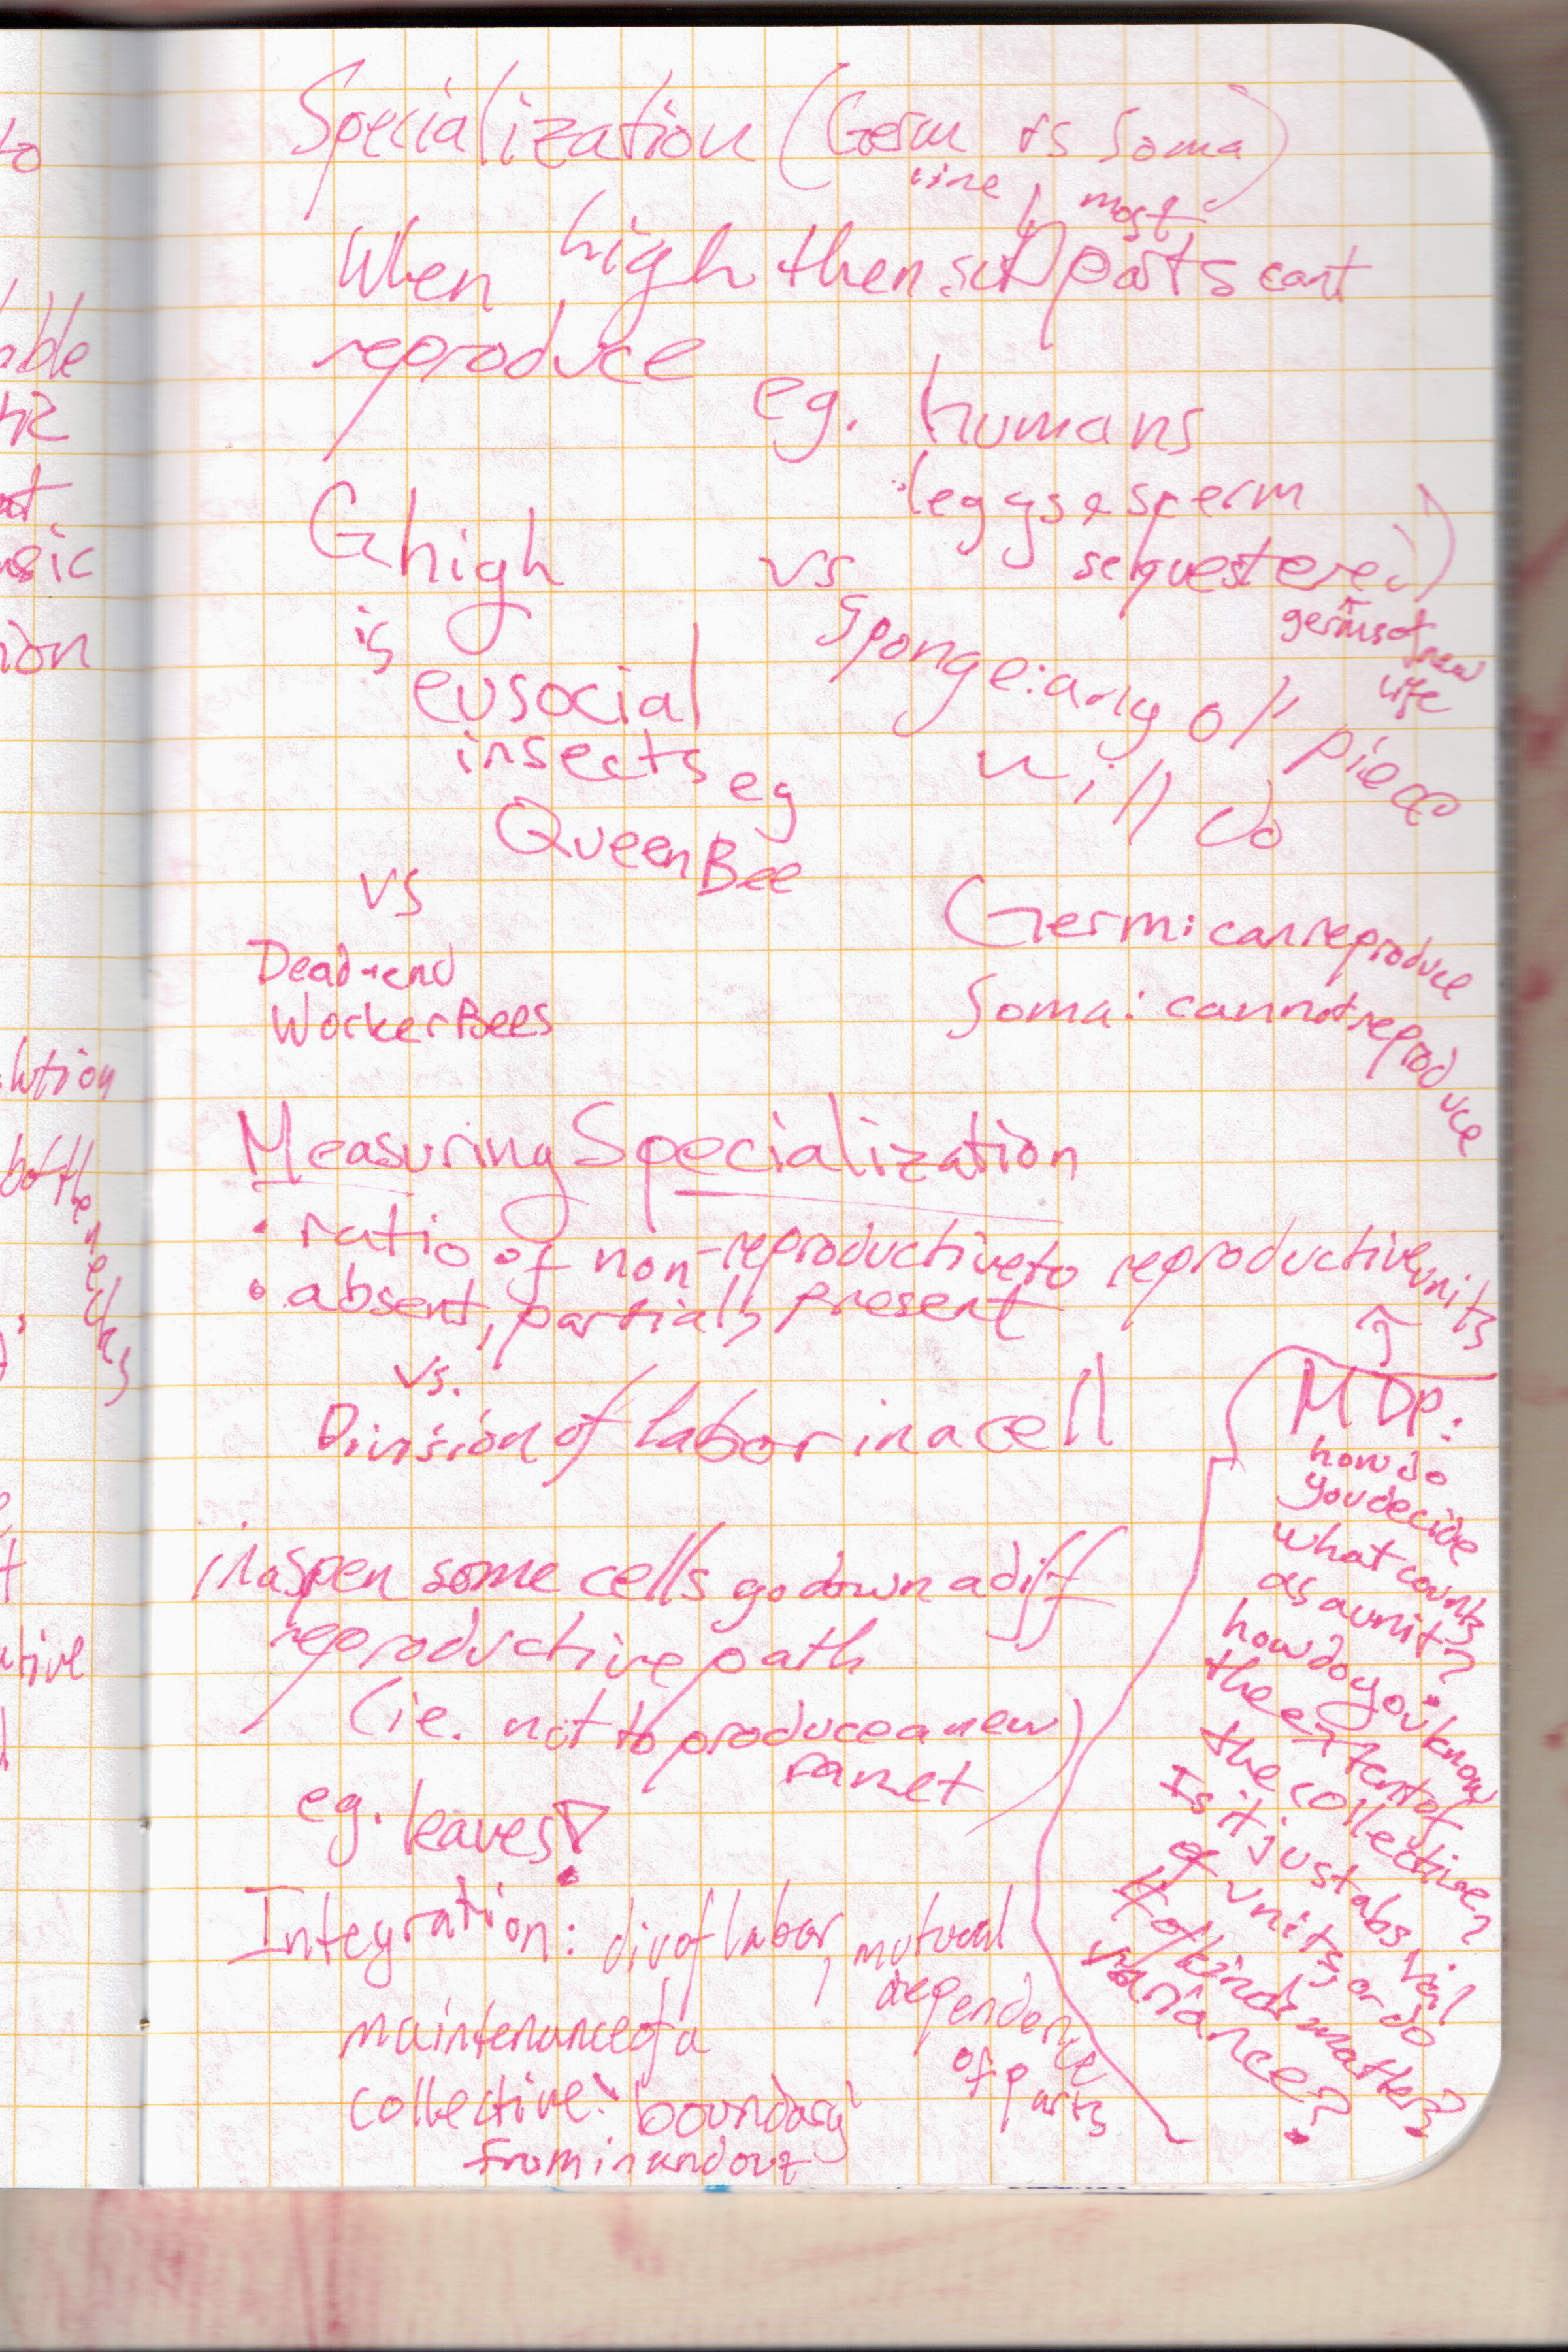 Specialization (Germ vs Soma)
line
most
When high then parts cant
reproduce
eg. humans
(eggs & sperm
sequestered)
germs of new
life
G high
is
eusocial
insects eg
Queen Bee
vs
Dead-end
Worker Bees
vs
Sponge: any ol' piece
will do
Germ: can reproduce
Soma: cannot reproduce
Measuring Specialization
• ratio of non-reproductive to reproductive units
• absent, partial, present
vs.
Division of labor in a cell
in aspen some cells go down a diff
reproductive path
(ie. not to produce a new
ramet)
eg. leaves!
Integration: div of labor, mutual
dependence
of parts
maintenance of a
collective: 'boundary'
from in and out
MDP:
how do
you decide
what counts
as a unit?
how do you know
the extent of
the collective?
Is it just abs. val
of units, or do
# of kinds matter?
variance?
to
able
tic
not
nsic
ion
lution
bottlenecks
ative